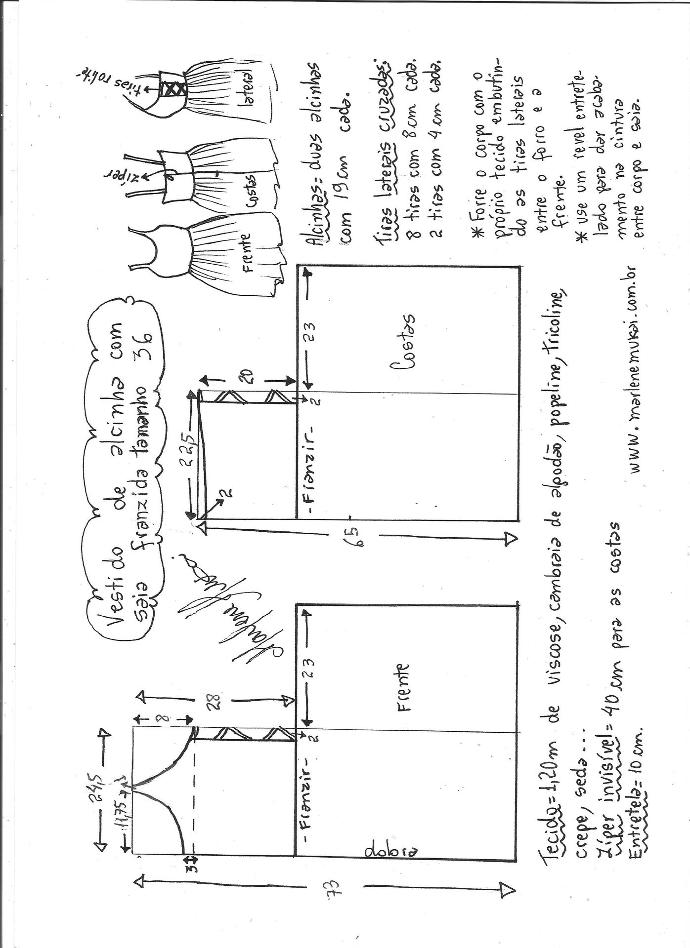 Vestido de alcinha com
saia franzida tamanho 36
Frente
Costas
zíper
lateral
tiras rolite
Alcinhas= duas alcinhas
com 19 cm cada.
Tiras laterais cruzadas:
8 tiras com 8 cm cada.
2 tiras com 4 cm cada.
* Forre o corpo com o
próprio tecido embutin-
do as tiras laterais
entre o forro e a
frente.
* Use um revel entrete-
lado para dar acaba-
mento na cintura
entre corpo e saia.
24,5
11,75
8
28
3
2
23
-Franzir-
Frente
dobra
73
22,5
20
2
2
23
-Franzir-
Costas
65
Tecido=1,20m de viscose, cambraia de algodão, popeline, tricoline,
crepe, seda...
Zíper invisível= 40 cm para as costas
Entretela= 10 cm.
www.marlenemukai.com.br